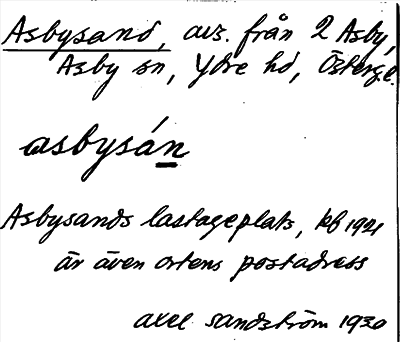 Asbysand, avs. från 2 Asby,
Asby sn, Ydre hd, Österg.l.
asbysán
Asbysands lastageplats, kf 1921
är även ortens postadress
axel sandström 1930